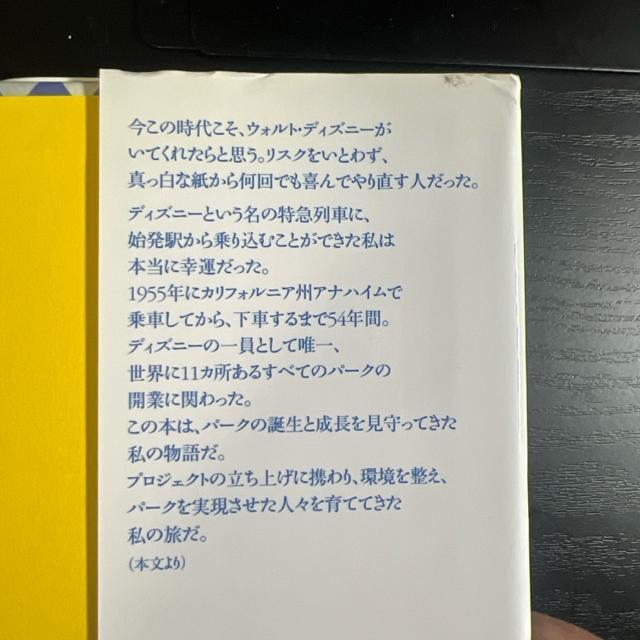 今この時代こそ、ウォルト・ディズニーが
いてくれたらと思う。リスクをいとわず、
真っ白な紙から何回でも喜んでやり直す人だった。
ディズニーという名の特急列車に、
始発駅から乗り込むことができた私は
本当に幸運だった。
1955年にカリフォルニア州アナハイムで
乗車してから、下車するまで54年間。
ディズニーの一員として唯一、
世界に11カ所あるすべてのパークの
開業に関わった。
この本は、パークの誕生と成長を見守ってきた
私の物語だ。
プロジェクトの立ち上げに携わり、環境を整え、
パークを実現させた人々を育ててきた
私の旅だ。
(本文より)